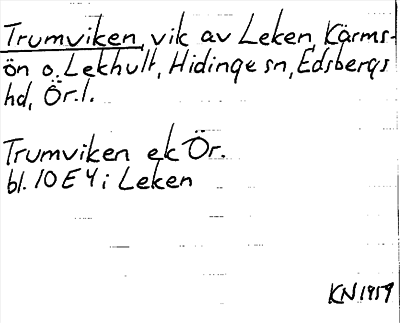 Trumviken, vik av Leken, Kärms-
ön o. Lekhult, Hidinge sn, Edsbergs
hd, Ör.l.
Trumviken ek Ör.
bl. 10 E 4 i Leken
KN 1959